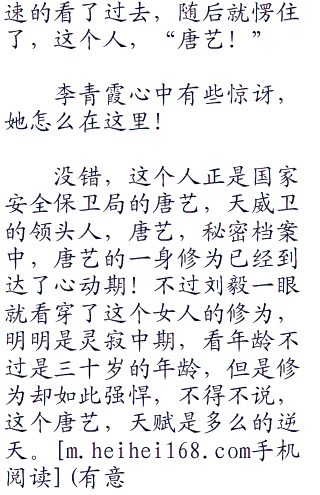 速的看了过去，随后就愣住
了，这个人，“唐艺！”
李青霞心中有些惊讶，
她怎么在这里！
没错，这个人正是国家
安全保卫局的唐艺，天威卫
的领头人，唐艺，秘密档案
中，唐艺的一身修为已经到
达了心动期！不过刘毅一眼
就看穿了这个女人的修为，
明明是灵寂中期，看年龄不
过是三十岁的年龄，但是修
为却如此强悍，不得不说，
这个唐艺，天赋是多么的逆
天。[m.heihei168.com手机
阅读](有意